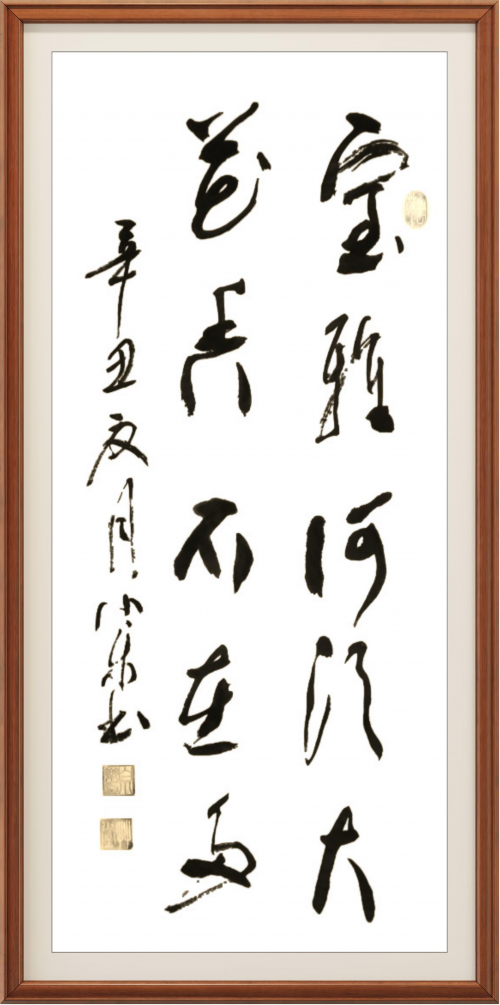 室雅何须大
花香不在多
辛丑夏月小书